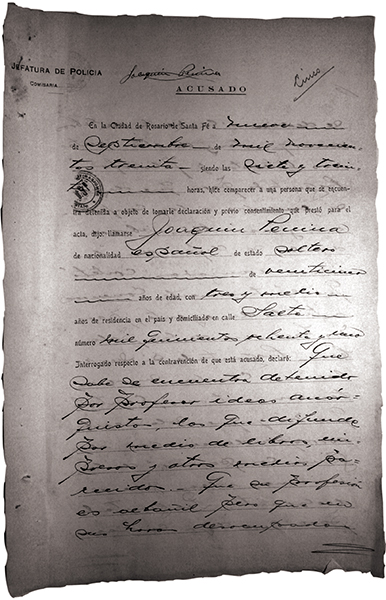 JEFATURA DE POLICIA
COMISARIA
Joaquín Penina
ACUSADO
En la Ciudad de Rosario de Santa Fé a nueve
de Septiembre de mil novecien-
tos treinta siendo las siete y trein-
ta horas, hice comparecer a una persona que se encuen-
tra detenida a objeto de tomarle declaración y prévio consentimiento que prestó para el
acto, dijo: llamarse Joaquin Penina
de nacionalidad español de estado soltero
de veinticinco
años de edad, con tres y medio
años de residencia en el país y domiciliado en calle Salta
número mil quinientos ochenta y uno
Interrogado respecto a la contravención de que está acusado, declaró: Que
sabe se encuentra detenido
por profesar ideas anár-
quistas, las que difunde
por medio de libros,
y otros medios pa-
recidos. Que su profesión
es albañil pero que en
sus horas desocupadas